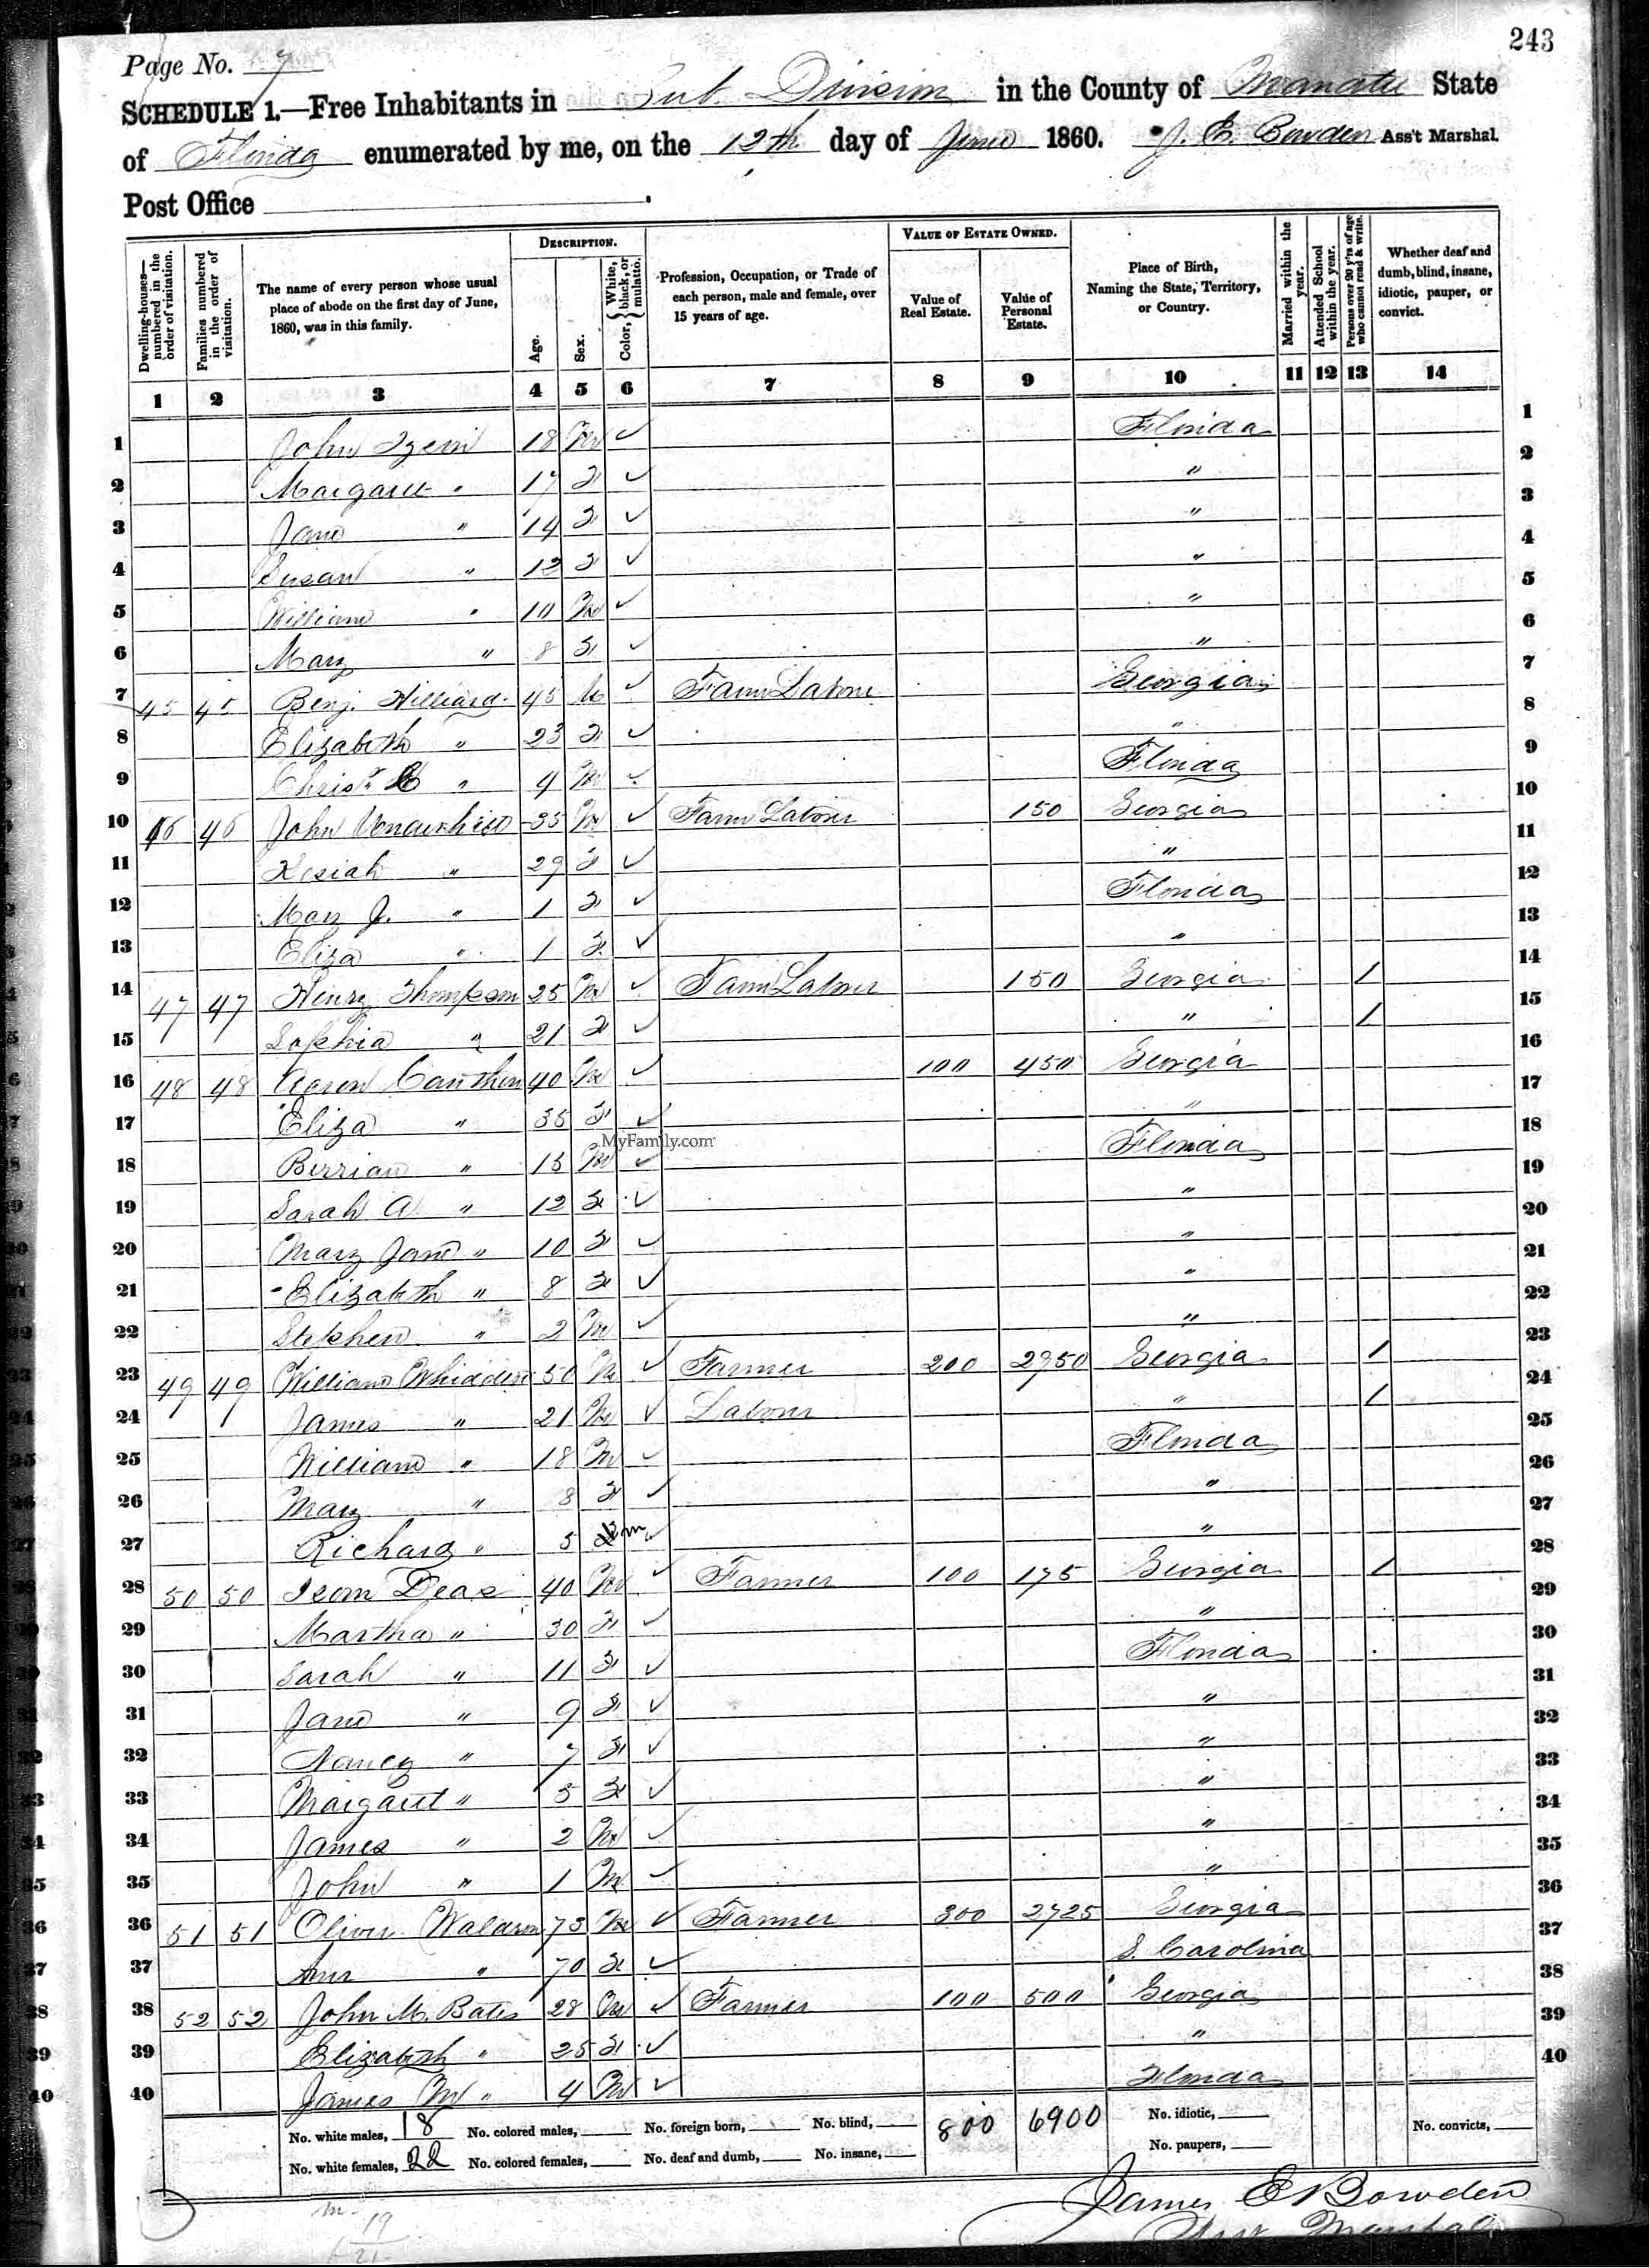 243
Page No. 7
SCHEDULE 1.—Free Inhabitants in Sub. Division in the County of Manatee State
of Florida enumerated by me, on the 12th day of June 1860. J. E. Bowden Ass't Marshal.
Post Office
Dwelling-houses—numbered in the order of visitation.
Families numbered in the order of visitation.
The name of every person whose usual place of abode on the first day of June, 1860, was in this family.
DESCRIPTION.
Age.
Sex.
Color, { White, black, or mulatto.
Profession, Occupation, or Trade of each person, male and female, over 15 years of age.
VALUE OF ESTATE OWNED.
Value of Real Estate.
Value of Personal Estate.
Place of Birth, Naming the State, Territory, or Country.
Married within the year.
Attended School within the year.
Persons over 20 y'rs of age who cannot read & write.
Whether deaf and dumb, blind, insane, idiotic, pauper, or convict.
1 2 3 4 5 6 7 8 9 10 11 12 13 14
1 John 18 M ✓ Florida 1
2 Margaret " 17 F ✓ " 2
3 Jane " 14 F ✓ " 3
4 Susan " 12 F ✓ " 4
5 William " 10 M ✓ " 5
6 Mary " 8 F ✓ " 6
7 45 45 Benj. Hilliard 45 M ✓ Farm Labour Georgia 7
8 Elizabeth " 23 F ✓ " 8
9 Christ. " 4 M ✓ Florida 9
10 46 46 John 35 M ✓ Farm Labour 150 Georgia 10
11 Kesiah " 29 F ✓ " 11
12 Mary J. " 1 F ✓ Florida 12
13 Eliza " 1 F ✓ " 13
14 47 47 Henry Thompson 25 M ✓ Farm Labour 150 Georgia / 14
15 Sophia " 21 F ✓ " / 15
16 48 48 Aaron Cauthen 40 M ✓ 100 450 Georgia 16
17 Eliza " 35 F ✓ " 17
MyFamily.com
18 Berrian " 15 M ✓ Florida 18
19 Sarah A " 12 F ✓ " 19
20 Mary Jane " 10 F ✓ " 20
21 Elizabeth " 8 F ✓ " 21
22 Stephen " 2 M ✓ " 22
23 49 49 William Whidden 50 M ✓ Farmer 200 2950 Georgia / 23
24 James " 21 M ✓ Labour " / 24
25 William " 18 M ✓ Florida 25
26 Mary " 8 F ✓ " 26
27 Richard " 5 m ✓ " 27
28 50 50 Isom Deas 40 M ✓ Farmer 100 175 Georgia / 28
29 Martha " 30 F ✓ " 29
30 Sarah " 11 F ✓ Florida 30
31 Jane " 9 F ✓ " 31
32 Nancy " 7 F ✓ " 32
33 Margaret " 5 F ✓ " 33
34 James " 2 M ✓ " 34
35 John " 1 M ✓ " 35
36 51 51 Oliver Waldron 73 M ✓ Farmer 300 2725 Georgia 36
37 Ann " 70 F ✓ S. Carolina 37
38 52 52 John M. Bates 28 M ✓ Farmer 100 500 Georgia 38
39 Elizabeth " 25 F ✓ " 39
40 James M " 4 M ✓ Florida 40
No. white males, 18 No. colored males, No. foreign born, No. blind, 800 6900 No. idiotic, No. convicts,
No. white females, 22 No. colored females, No. deaf and dumb, No. insane, No. paupers,
James E Bowden
Asst Marshal
m 19
f 21